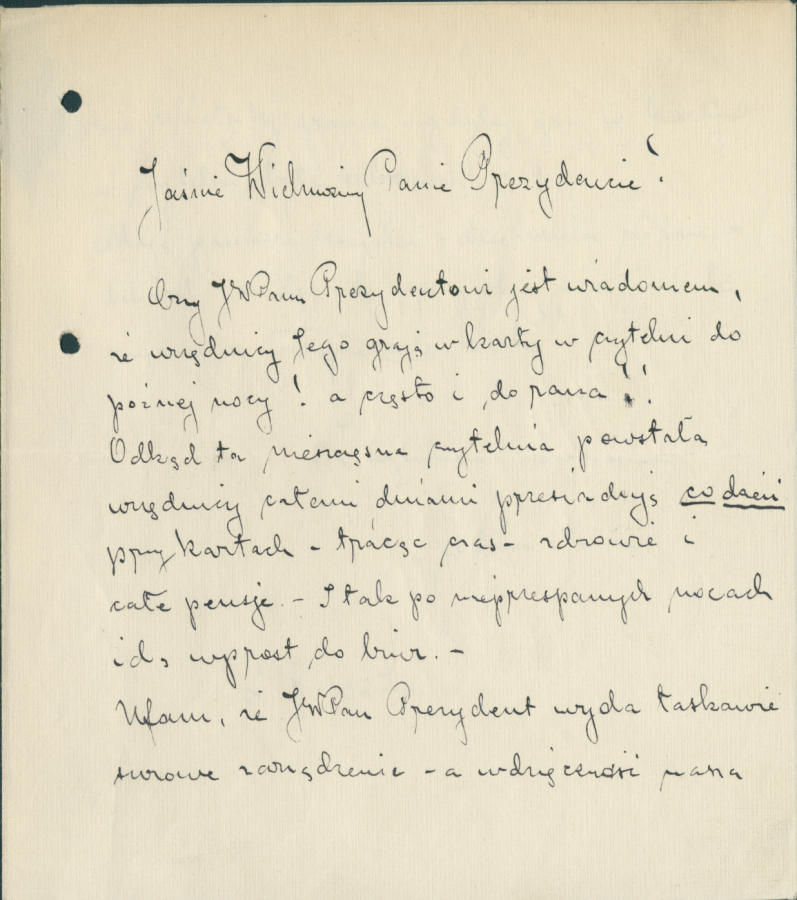 Jaśnie Wielmożny Panie Prezydencie!
Czy JWPanu Prezydentowi jest wiadomem,
że urzędnicy Jego grają w karty w czytelni do
poźnej nocy! a często i do rana!!
Odkąd ta nieszczęsna czytelnia powstała
urzędnicy całemi dniami przesiadują co dzień
przy kartach - tracąc czas - zdrowie i
całe pensje. - I tak po nieprzespanych nocach
idą wprost do biur. -
Ufam, że JWPan Prezydent wyda łaskawie
surowe zarządzenie - a wdzięczność nasza